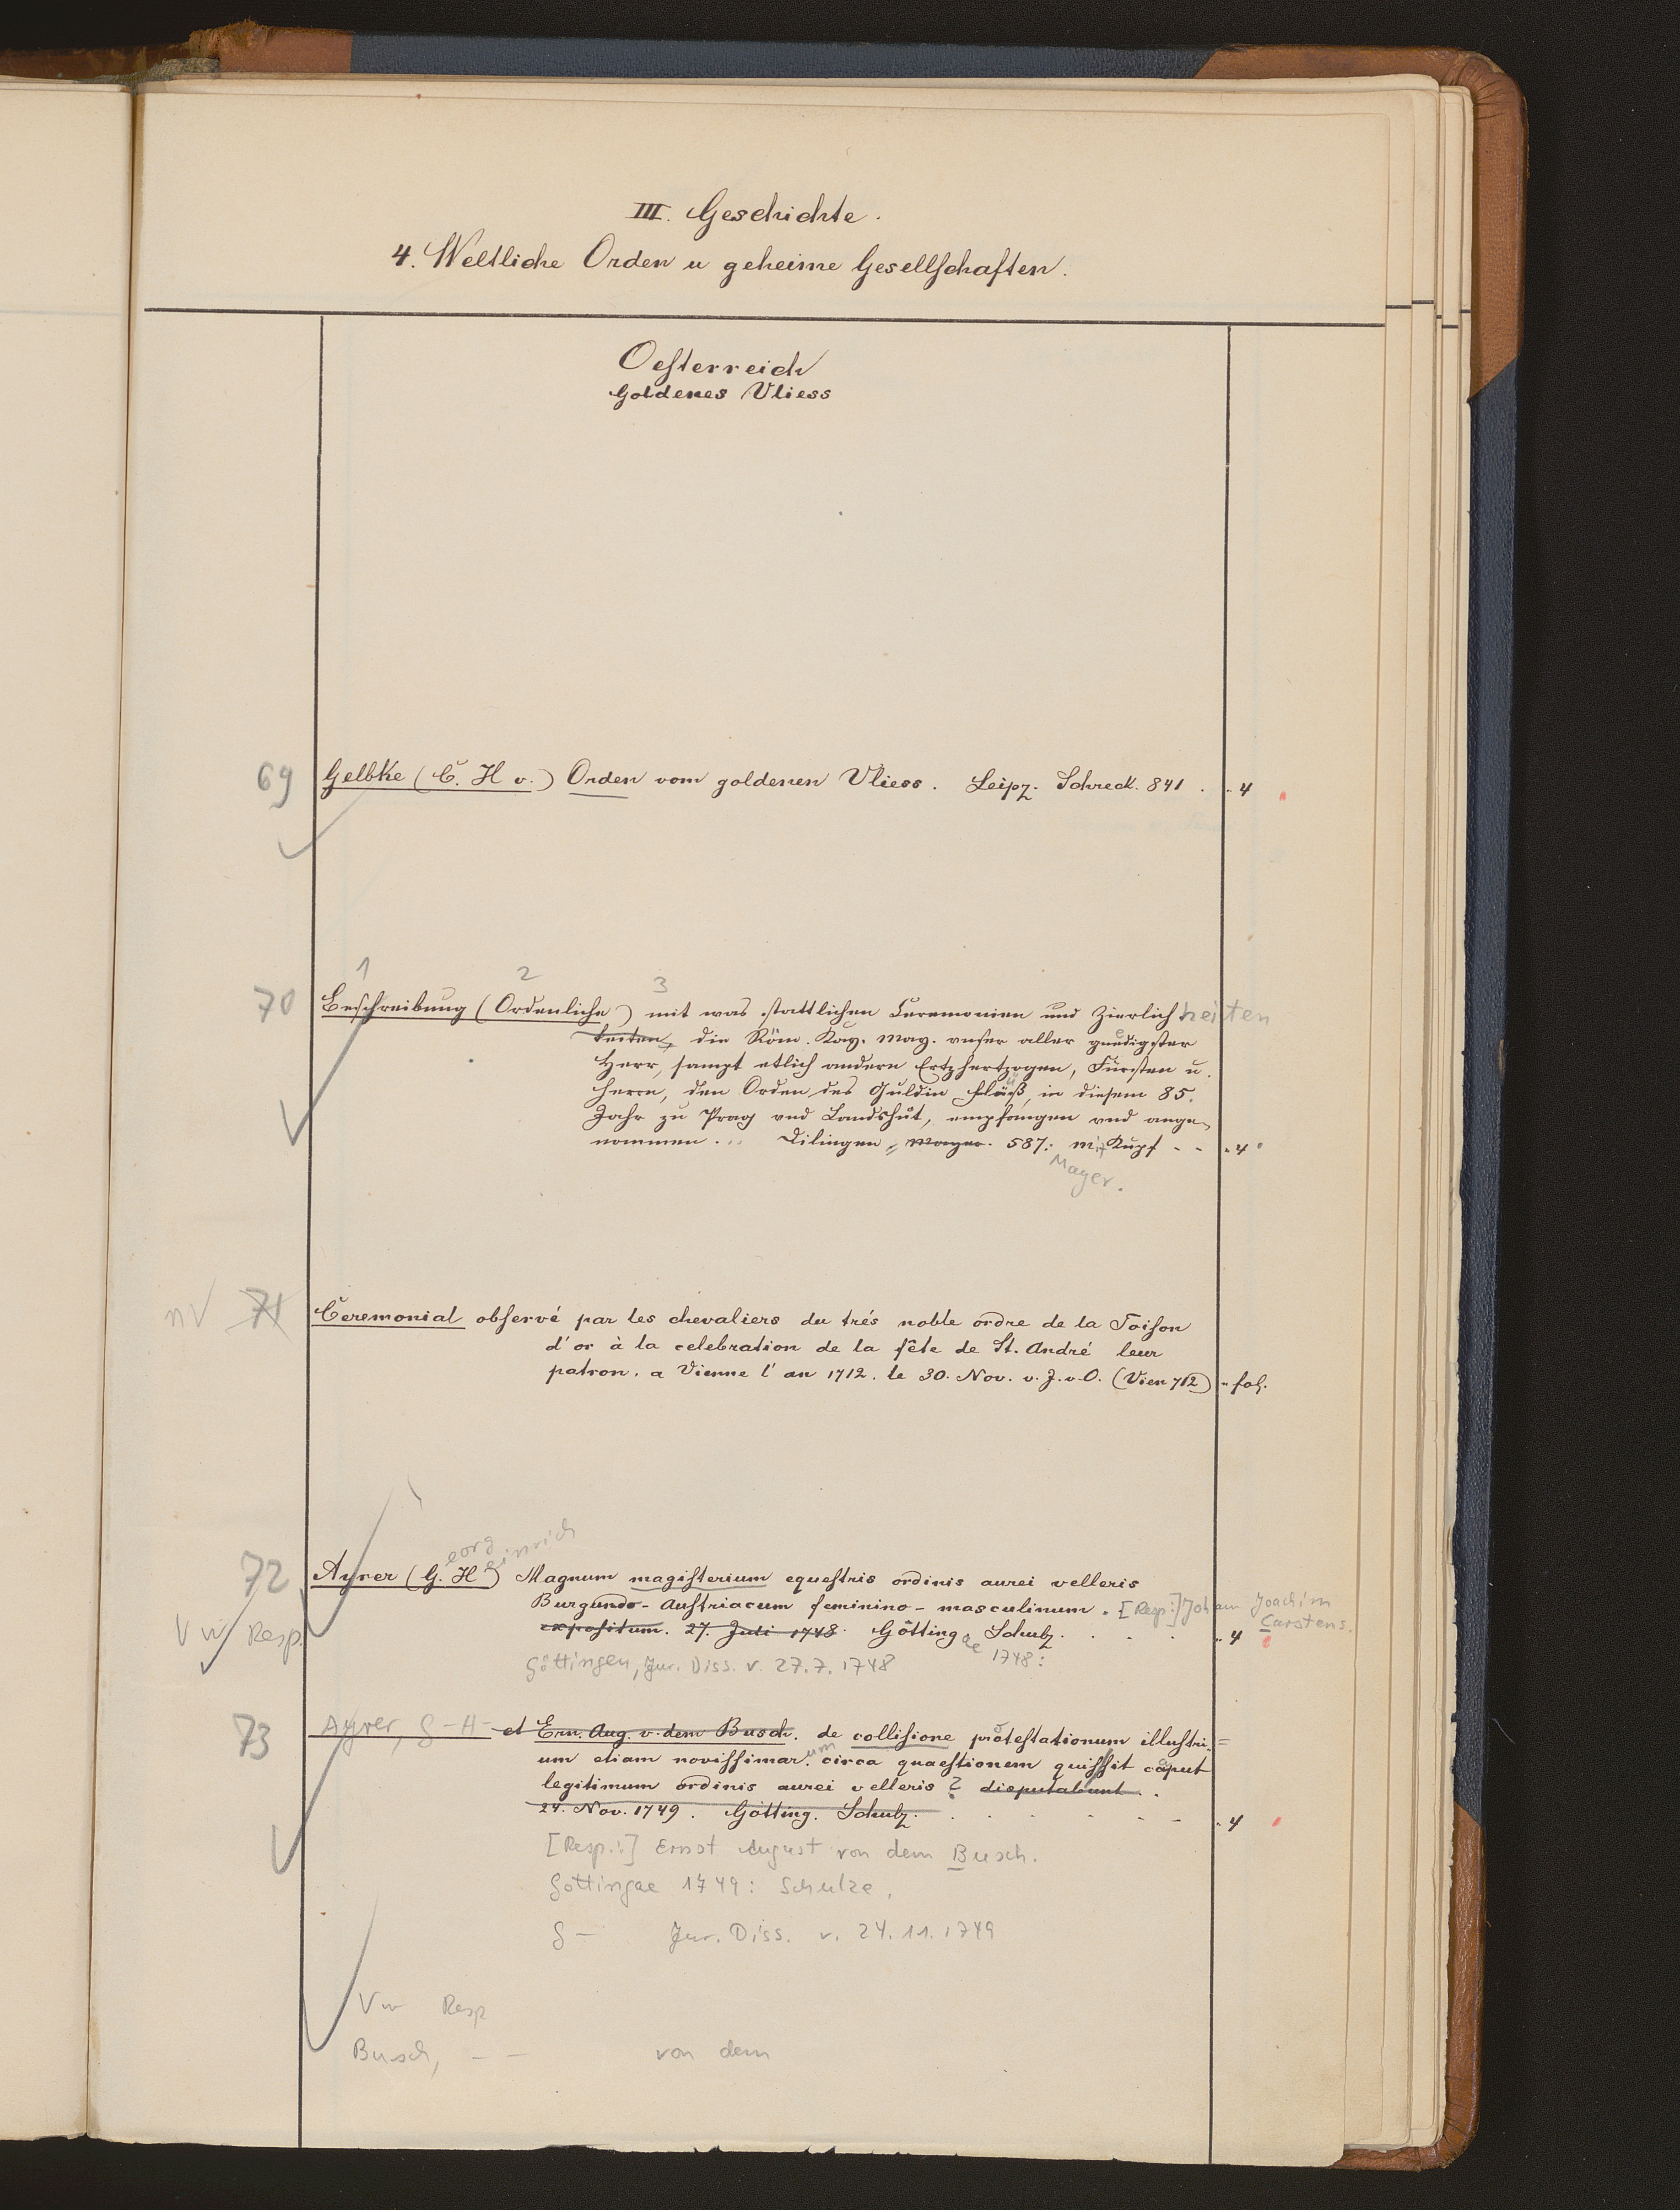 III. Geschichte.
4. Weltliche Orden u geheime Gesellschaften.
Oesterreich
Goldenes Vliess
69 Gelbke (C. H v.) Orden vom goldenen Vliess. Leipz. Schreck. 841 . . 4
1 2 3
70 Beschreibung (Ordenliche) mit was stattlichen Ceremonien und Zierlich heiten
keiten, die Röm. Kay. May. vnser aller gnedigster
Herr, sampt etlich andern Ertzhertzogen, Fürsten u.
Herrn, den Orden des Guldin Flüß, in diesem 85.
Jahr zu Prag vnd Landshut, empfangen vnd ange-
nommen. .. Dilingen, Mayer. 587: mit Kupf - - . 4
Mayer.
nV 71 Ceremonial observé par les chevaliers du trés noble ordre de la Toison
d'or à la celebration de la fête de St. André leur
patron. a Vienne l'an 1712. le 30. Nov. v. J. v. O. (Vien 712) - fol.
eorg einrich
72 Ayrer (G. H) Magnum magisterium equestris ordinis aurei velleris
Burgundo-Austriacum feminino-masculinum. [Resp:] Johann Joachim
Carstens.
Vw Resp. expositum. 27. Juli 1748. Götting ae Schulz. . . . . 4
1748:
Göttingen, Jur. Diss. v. 27.7.1748
73 Ayrer, G- H- et Ern. Aug. v. dem Busch. de collisione protestationum illustri-
um etiam novissimar. um circa quaestionem quis sit caput
legitimum ordinis aurei velleris? disputabunt. .
24. Nov. 1749. Götting. Schulz. . . . - - . 4
[Resp.:] Ernst August von dem Busch.
Göttingae 1749: Schulze.
G- Jur. Diss. v. 24.11.1749
Vw Resp
Busch, - - von dem